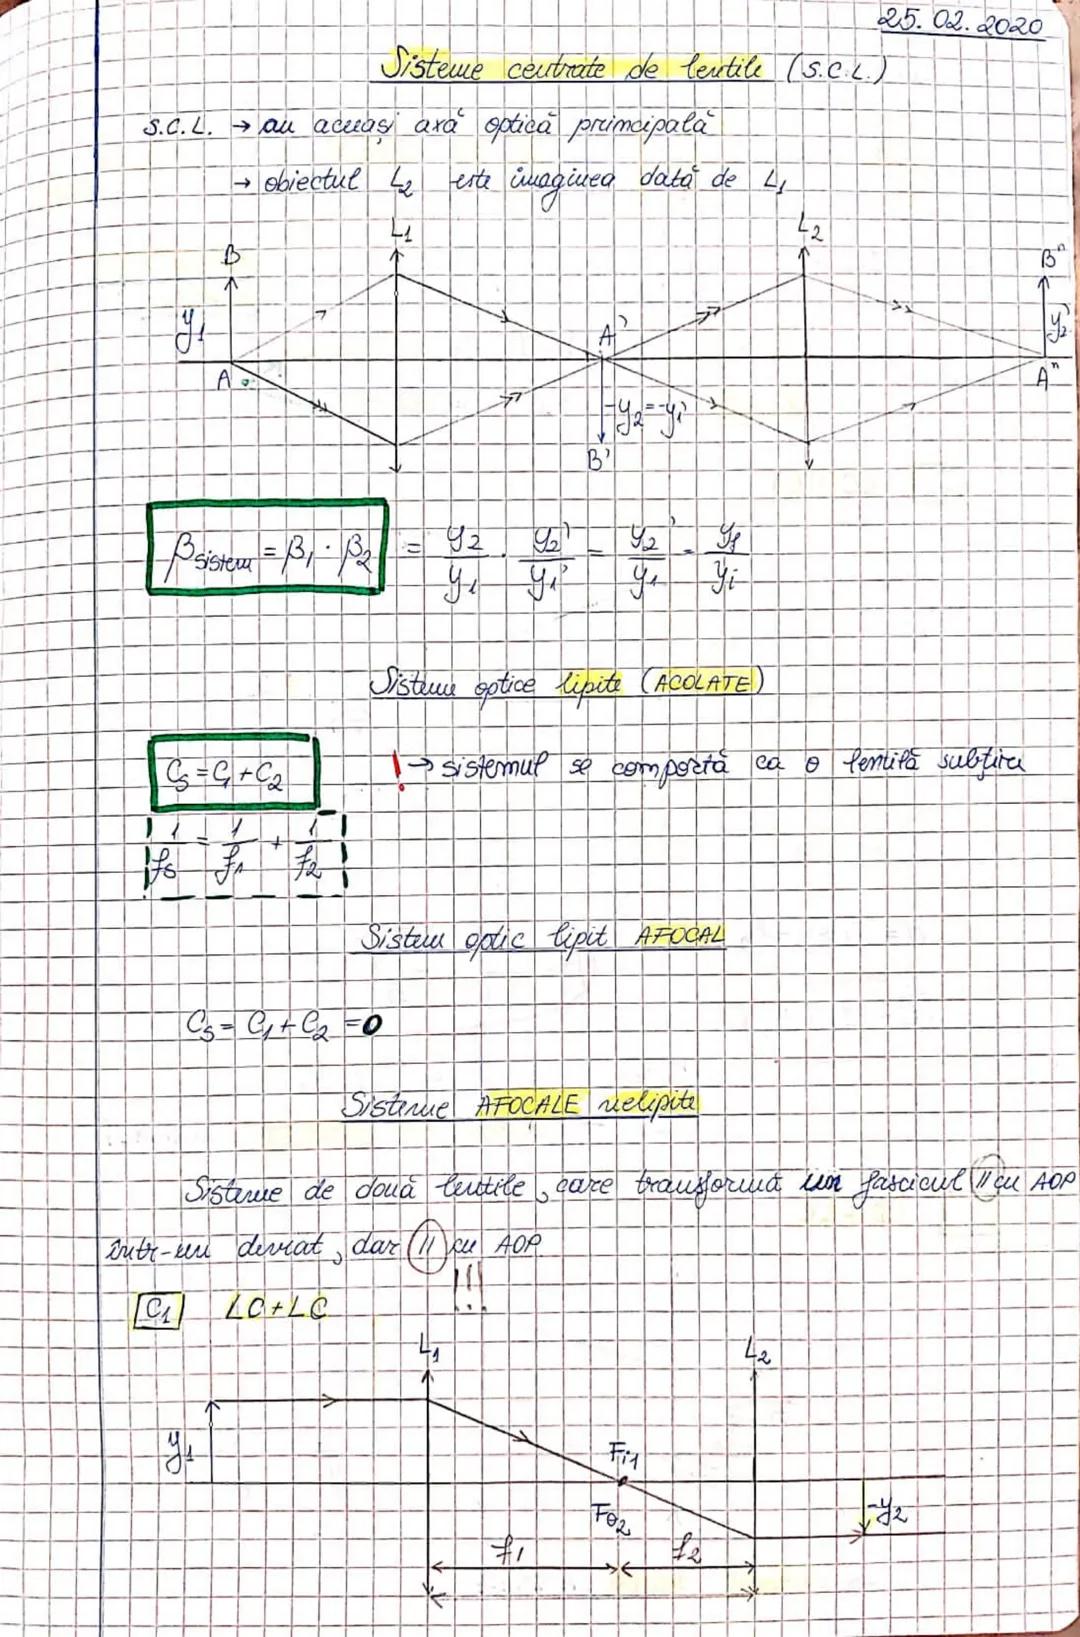 25.02.2020
Sisteme centrate de lentile (S.C.L.)
S.C.L. → au aceeași axă optică principală
→ obiectul L₂ este imaginea dată de L₁
L₁ L₂
B B"
y₁ A' y₂'
A A"
-y₂=-y₁'
B'
βsistem = β₁ · β₂ = y₂/y₁ · y₂'/y₁' = y₂'/y₁ = yf/yi
Sisteme optice lipite (ACOLATE)
Cs = C₁ + C₂ ! → sistemul se comportă ca o lentilă subțire
1/fs = 1/f₁ + 1/f₂
Sistem optic lipit AFOCAL
Cs = C₁ + C₂ = 0
Sisteme AFOCALE nelipite
Sisteme de două lentile, care transformă un fascicul || cu AOP
într-un deviat, dar || cu AOP
!!!
C₁ LC+LC
L₁ L₂
y₁ Fi₁
Fo₂ -y₂
f₁ f₂